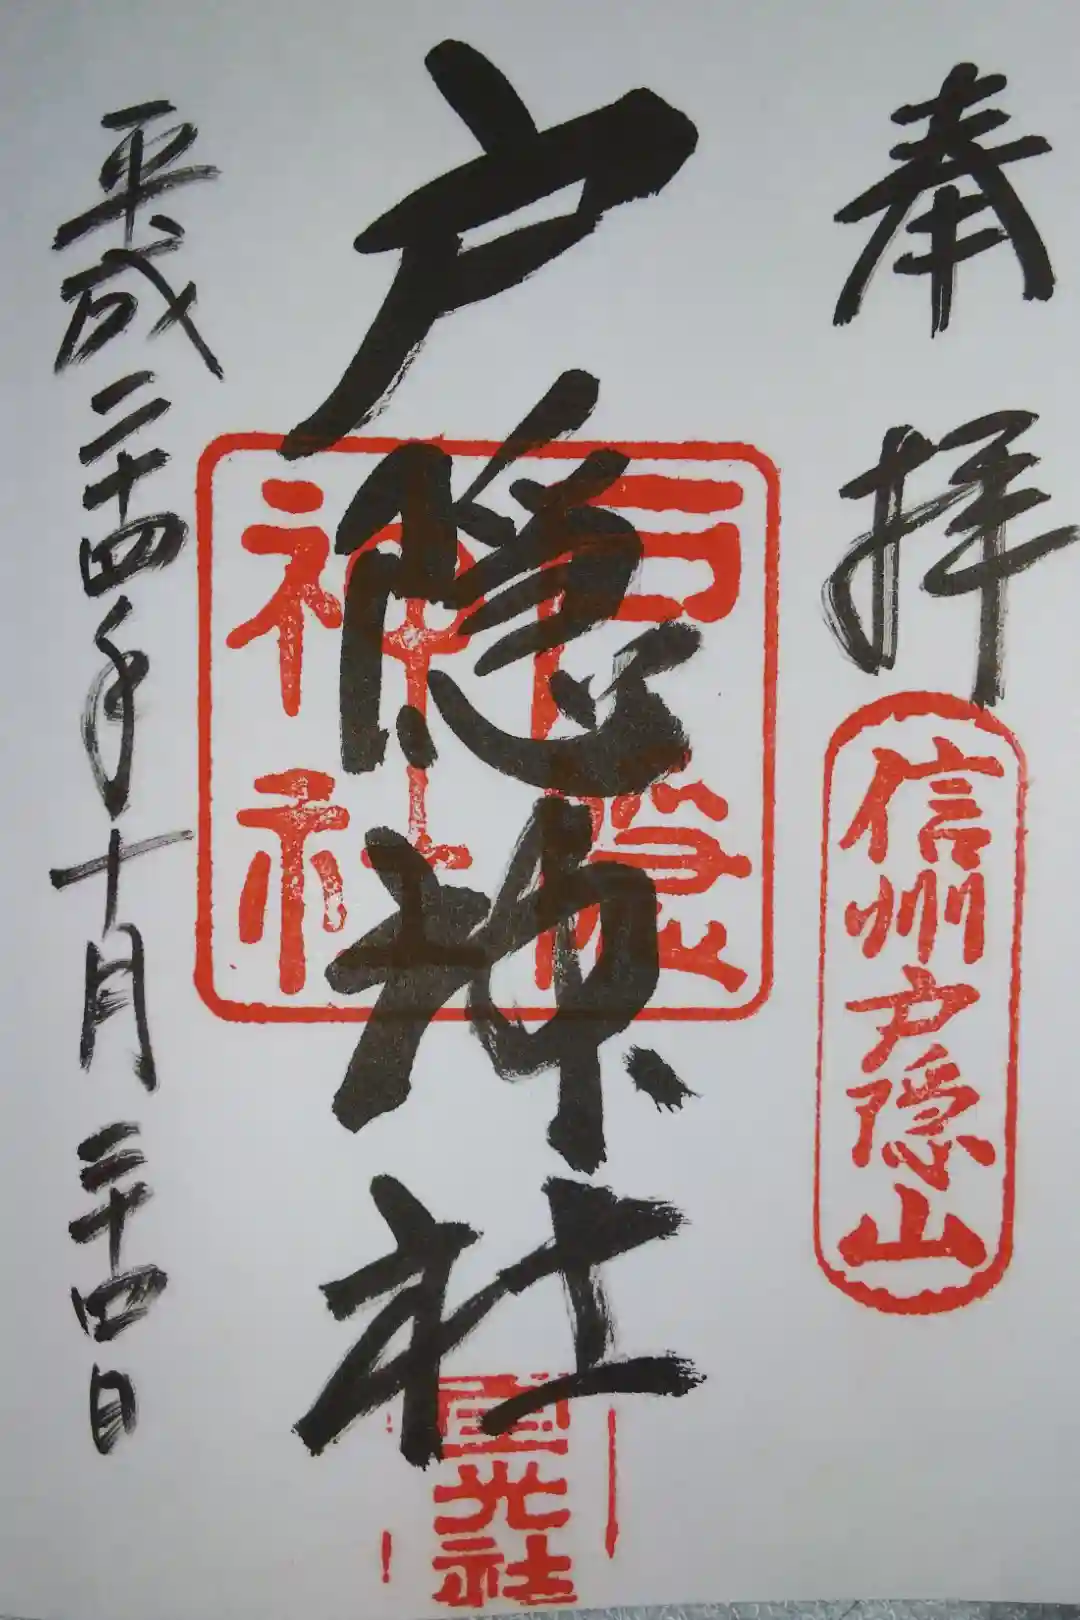 奉拝
信州戸隠山
戸隠神社
戸隠
神社
宝光社
平成二十四年十月二十四日